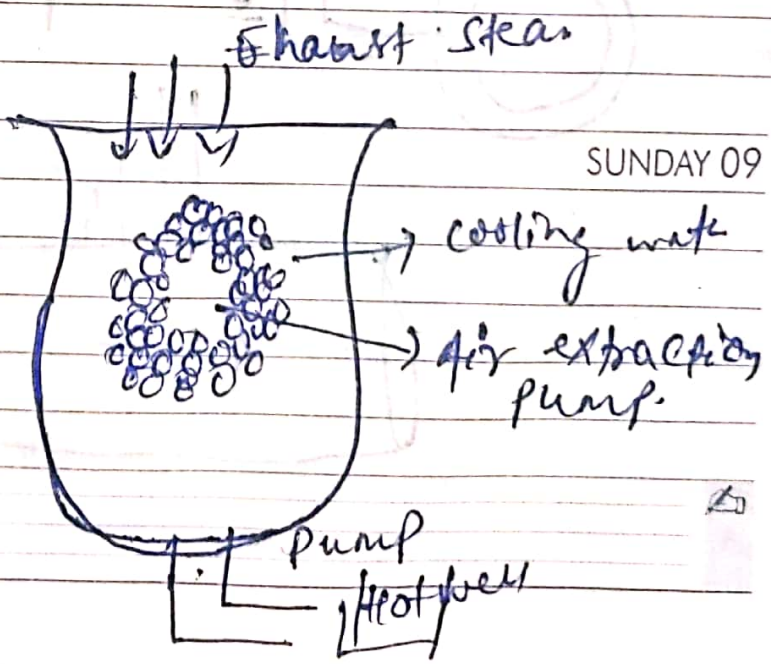 Exhaust Steam
SUNDAY 09
cooling water
Air extraction
pump.
pump
Hot well